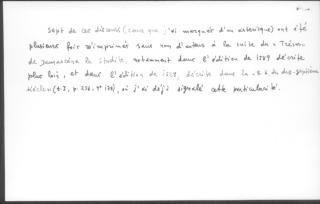 Sept de ces discours (ceux que j'ai marqués d'un astérisque) ont été
plusieurs fois réimprimés sans nom d'auteur à la suite du « Trésor»
de Damascène le Studite, notamment dans l'édition de 1589 décrite
plus loin, et dans l'édition de 1628, décrite dans la B. H. du dix-septième
siècle (t. I, p. 236, n° 170), où j'ai déjà signalé cette particularité.